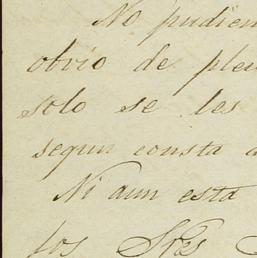 No pudien
obvio de ple
solo se les
segun consta
Ni aun esta
los Sres